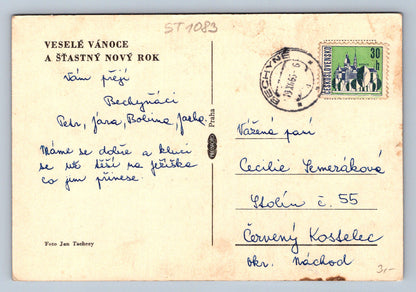 ST 1083
VESELÉ VÁNOCE
A ŠŤASTNÝ NOVÝ ROK
Vám přejí
Bechyňáci
Petr, Jára, Bobina, Jarka.
Máme se dobře a kluci
se už těší na ježíška
co jim přinese.
Foto Jan Tachezy
Praha
BECHYNĚ
30 h
ČESKOSLOVENSKO
Vážená paní
Cecilie Semeráková
Stolín č. 55
Červený Kostelec
okr. Náchod
3,-